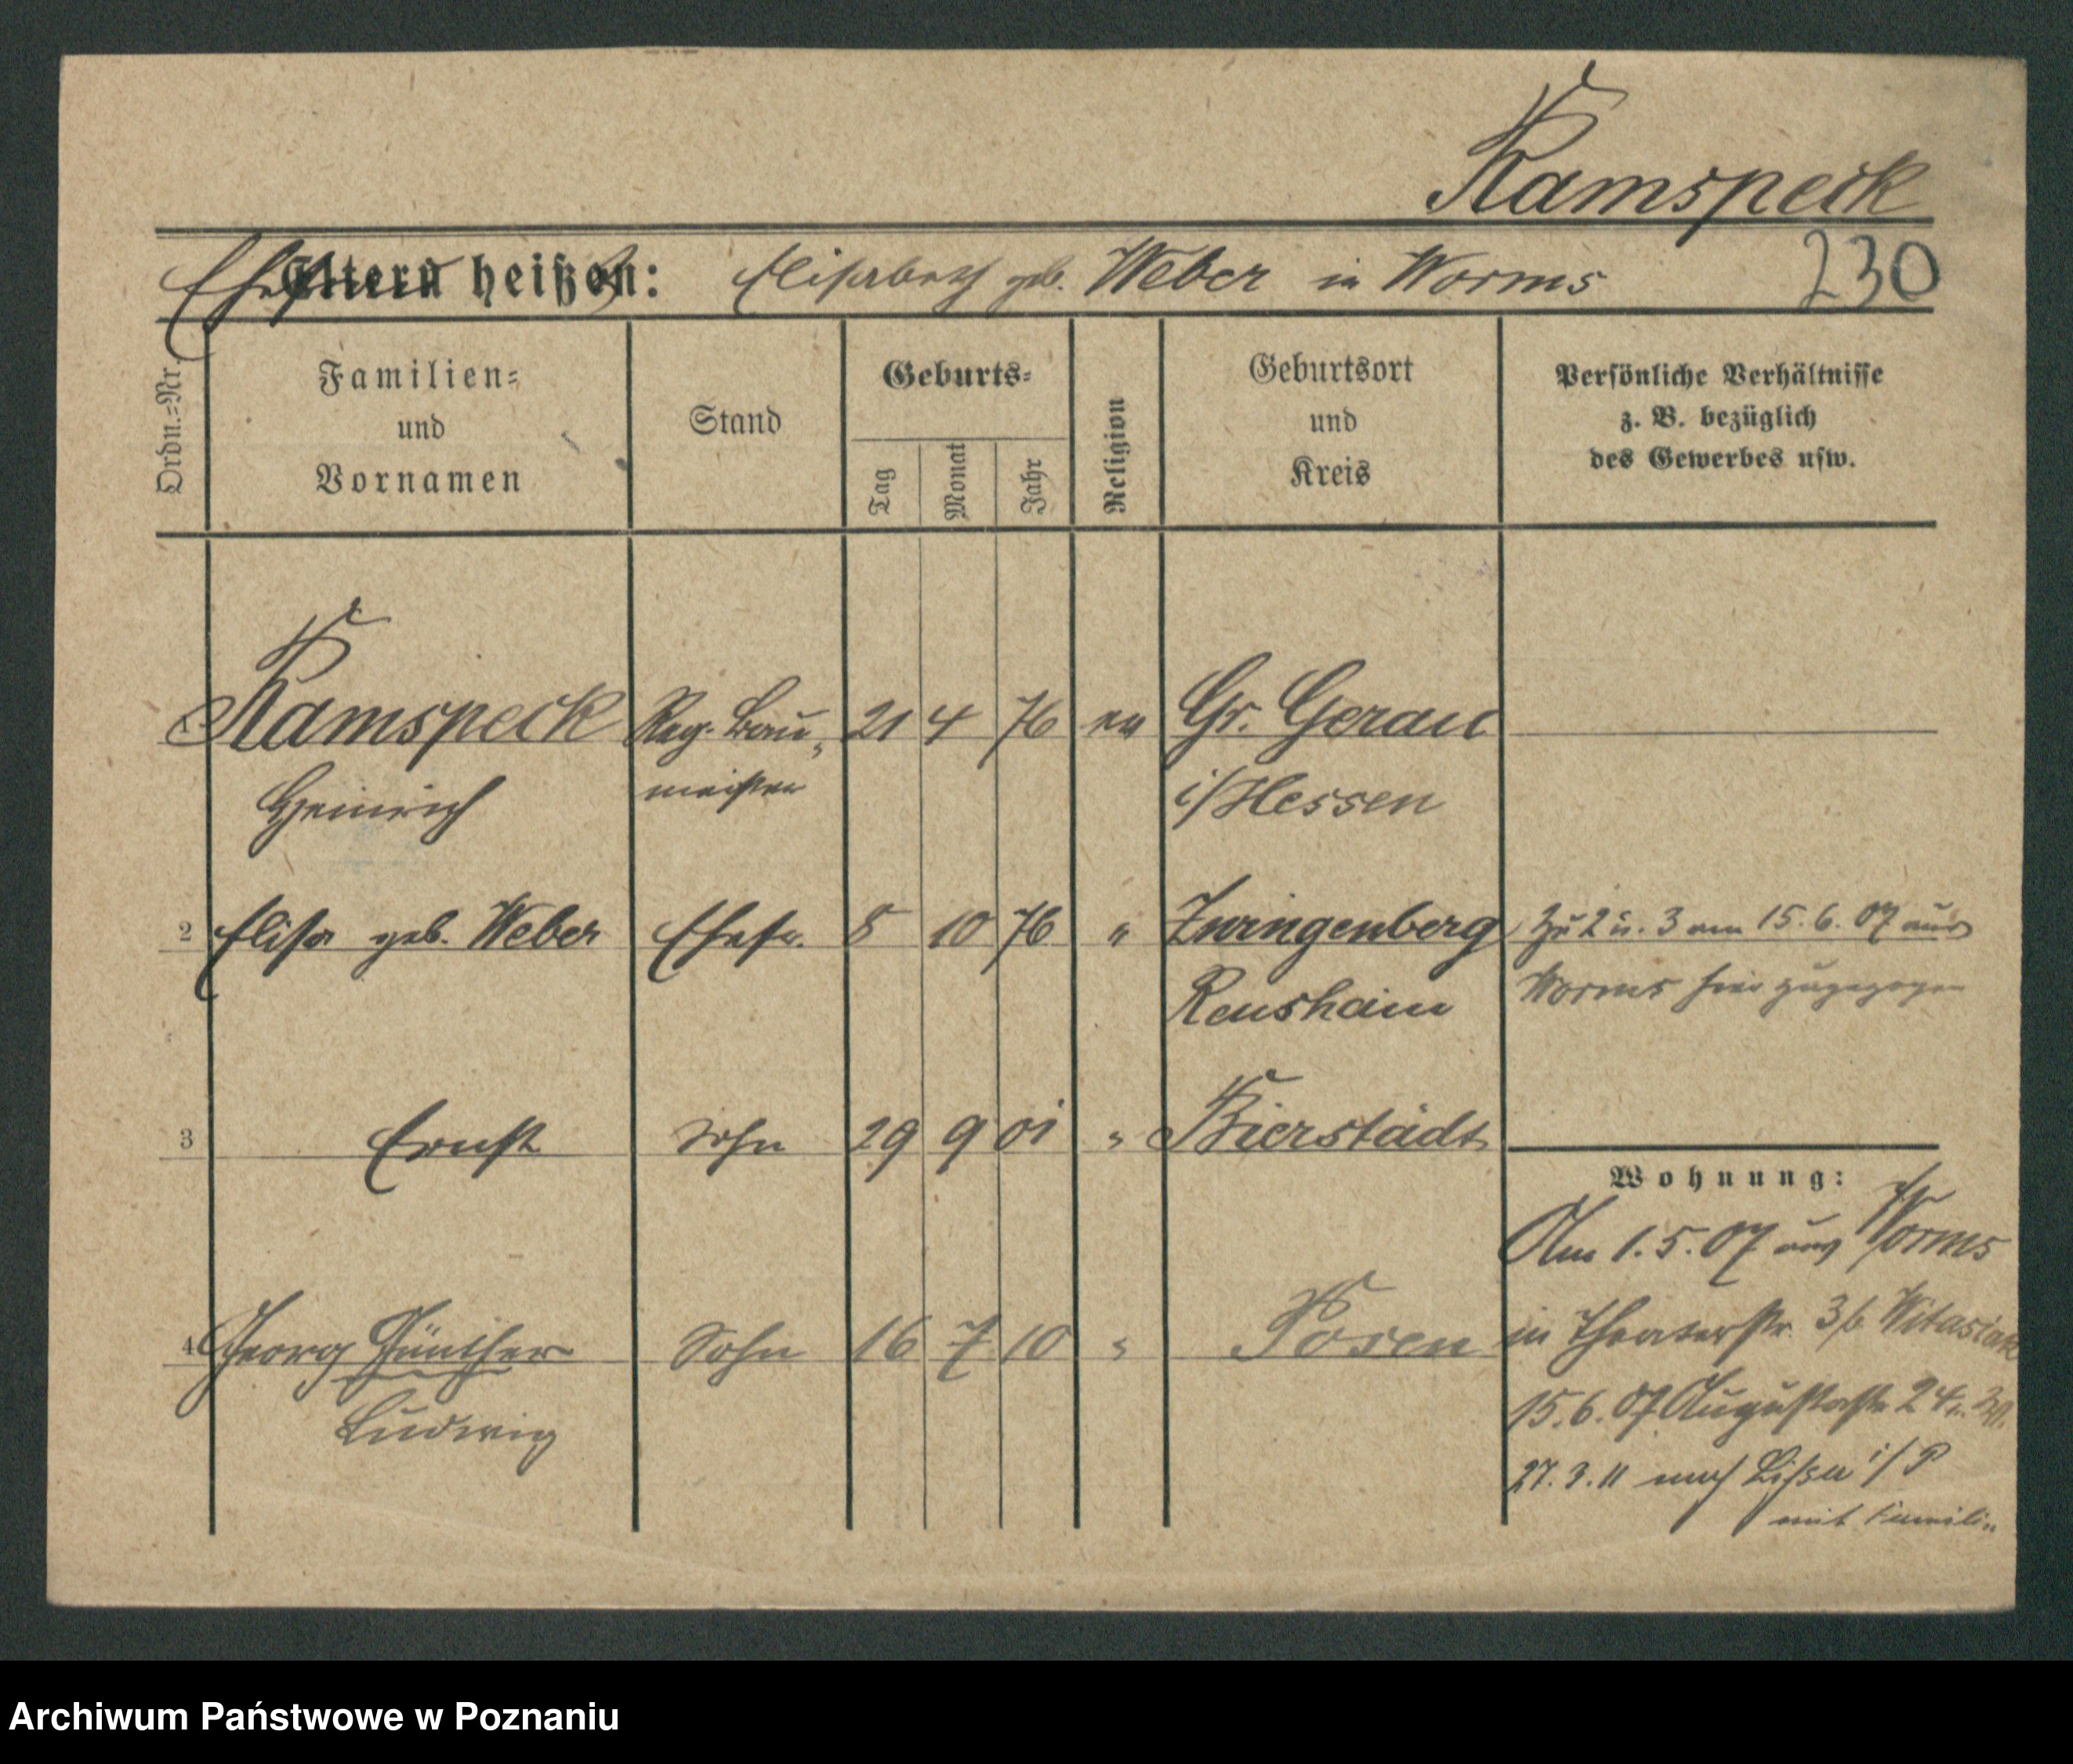 Ramspeck
Ehefrau heißt: Elisabeth geb. Weber in Worms 230
Ordn.-Nr.
Familien-
und
Vornamen
Stand
Geburts-
Tag
Monat
Jahr
Religion
Geburtsort
und
Kreis
Persönliche Verhältnisse
z. B. bezüglich
des Gewerbes usw.
1 Ramspeck Reg. Bau- 21 4 76 ev Gr. Gerau
Heinrich meister i/Hessen
2 Elisa geb. Weber Ehefr. 8 10 76 " Zwingenberg Zu 2 u. 3 am 15.6.07 aus
Bensheim Worms hier zugezogen
3 Ernst Sohn 29 9 01 " Bierstadt
Wohnung:
Am 1.5.07 aus Worms
4 Georg Günther Sohn 16 7 10 " Posen in Theaterstr. 3 b. Witasiak
Ludwig 15.6.07 Augustastr. 24
27.3.11 nach Lissa i/P
mit Familie
Archiwum Państwowe w Poznaniu